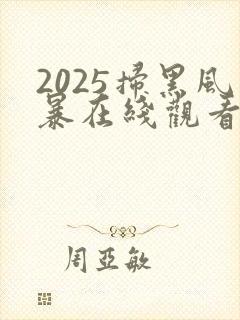 2025掃黑風
暴在綫觀看
周亞敏